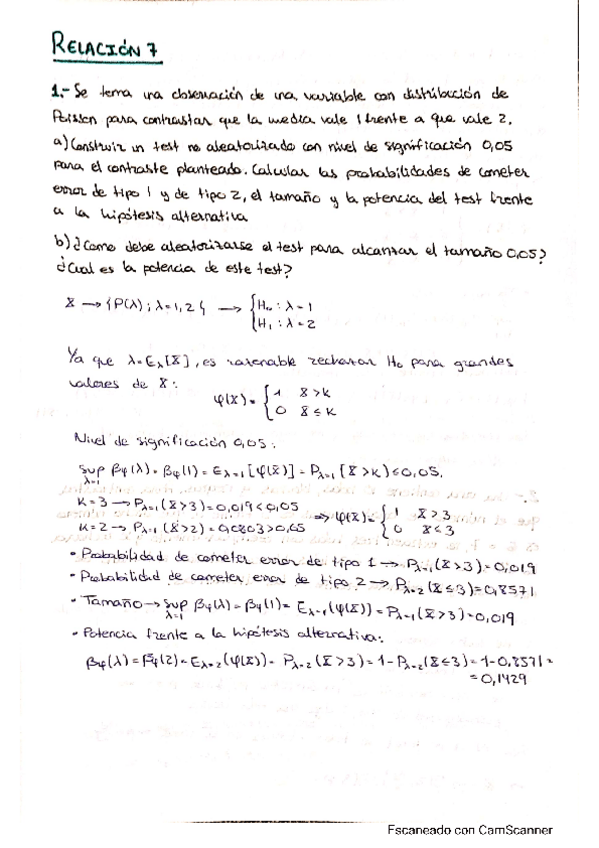 RELACIÓN 7
1.- Se toma una observación de una variable con distribución de
Poisson para contrastar que la media vale 1 frente a que vale 2.
a) Construir un test no aleatorizado con nivel de significación 0,05
para el contraste planteado. Calcular las probabilidades de cometer
error de tipo 1 y de tipo 2, el tamaño y la potencia del test frente
a la hipótesis alternativa
b) ¿Como debe aleatorizarse el test para alcanzar el tamaño 0,05?
¿Cual es la potencia de este test?
X → {P(λ) ; λ=1,2} → { H₀ : λ=1
H₁ : λ=2
Ya que λ=E_λ[X], es razonable rechazar H₀ para grandes
valores de X:
φ(X) = { 1 X>k
0 X≤k
Nivel de significación 0,05:
sup β_φ(λ) = β_φ(1) = E_λ=1[φ(X)] = P_λ=1[X>k) ≤ 0,05.
λ=1
K=3 → P_λ=1(X>3) = 0,019 < 0,05
K=2 → P_λ=1(X>2) = 0,0803 > 0,05 ⇒ φ(X) = { 1 X>3
0 X≤3
• Probabilidad de cometer error de tipo 1 → P_λ=1(X>3) = 0,019
• Probabilidad de cometer error de tipo 2 → P_λ=2(X≤3) = 0,8571
• Tamaño → sup β_φ(λ) = β_φ(1) = E_λ=1(φ(X)) = P_λ=1(X>3) = 0,019
λ=1
• Potencia frente a la hipótesis alternativa:
β_φ(λ) = β_φ(2) = E_λ=2(φ(X)) = P_λ=2(X>3) = 1-P_λ=2(X≤3) = 1-0,8571 =
= 0,1429
Escaneado con CamScanner